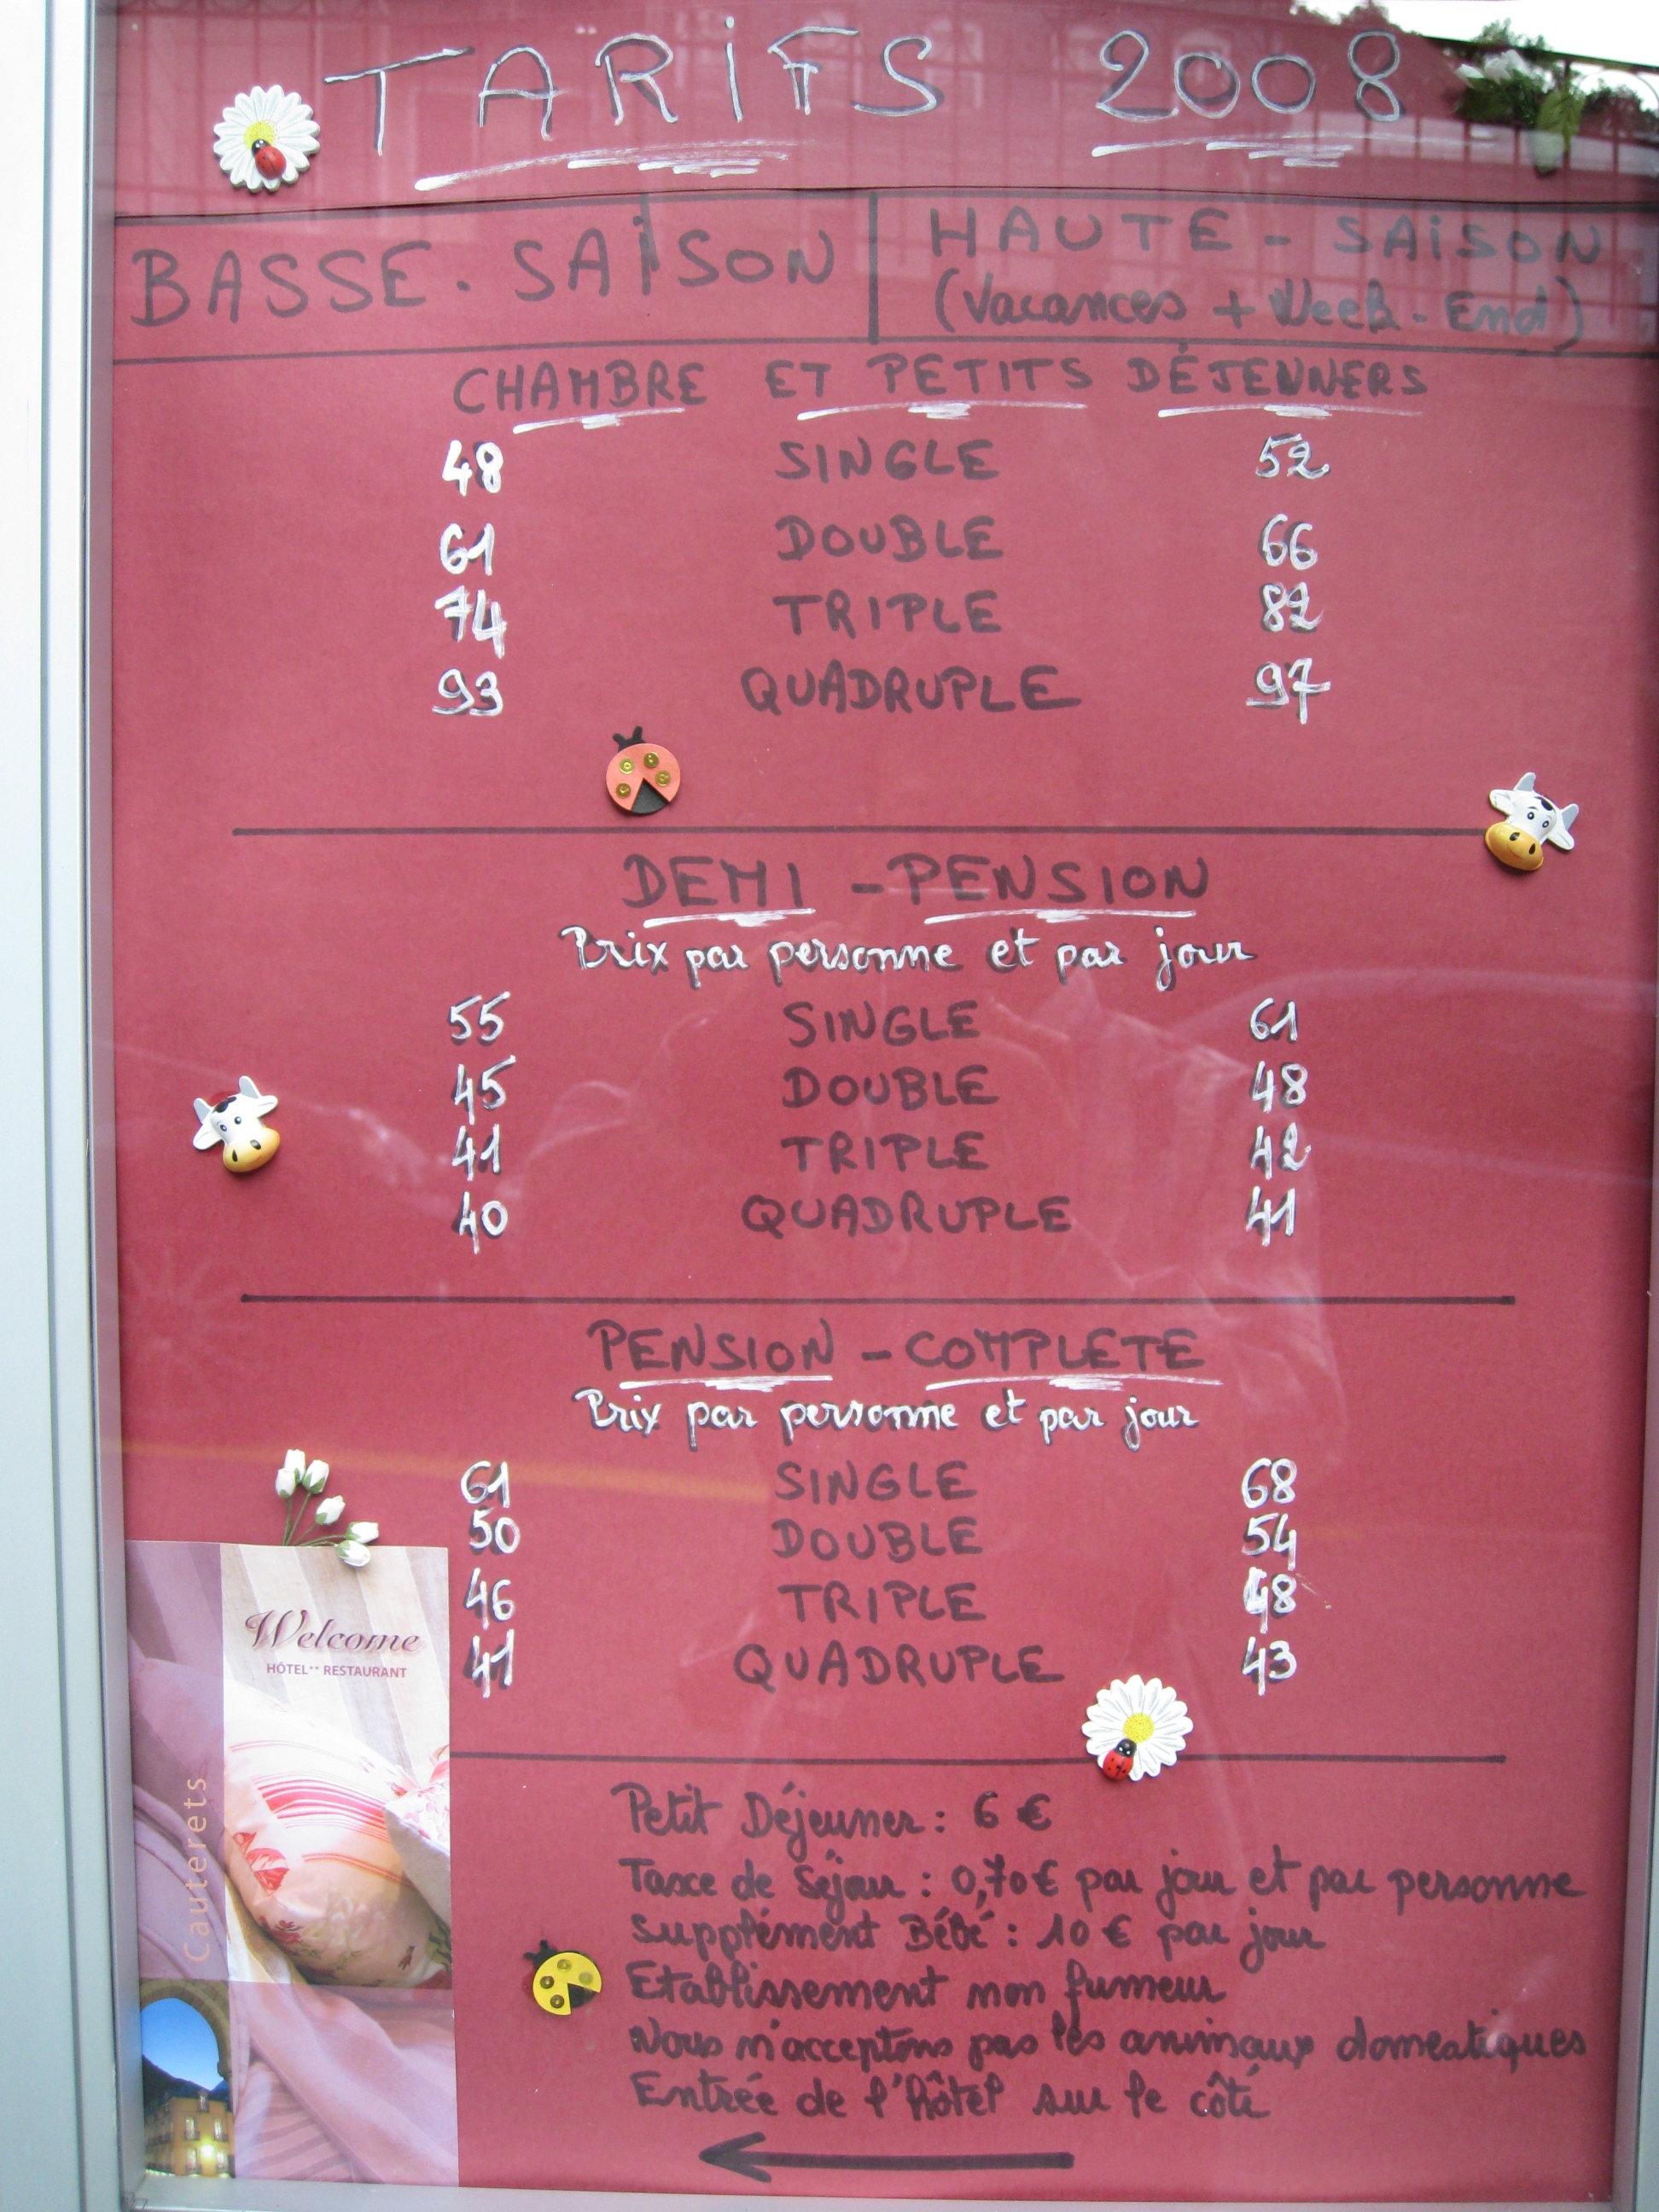 TARiFS 2008
BASSE-SAiSON
HAUTE-SAiSON
(Vacances + Week-End)
CHAMBRE ET PETITS DÉJEUNNERS
48 SINGLE 52
61 DOUBLE 66
74 TRIPLE 82
93 QUADRUPLE 97
DEMI-PENSION
Prix par personne et par jour
55 SINGLE 61
45 DOUBLE 48
41 TRIPLE 42
40 QUADRUPLE 41
PENSION-COMPLETE
Prix par personne et par jour
61 SINGLE 68
50 DOUBLE 54
46 TRIPLE 48
41 QUADRUPLE 43
Welcome
HÔTEL** RESTAURANT
Cauterets
Petit Déjeuner : 6 €
Taxe de Séjour : 0,70 € par jour et par personne
Supplément Bébé : 10 € par jour
Etablissement non fumeur
Nous n'acceptons pas les animaux domestiques
Entrée de l'hôtel sur le côté